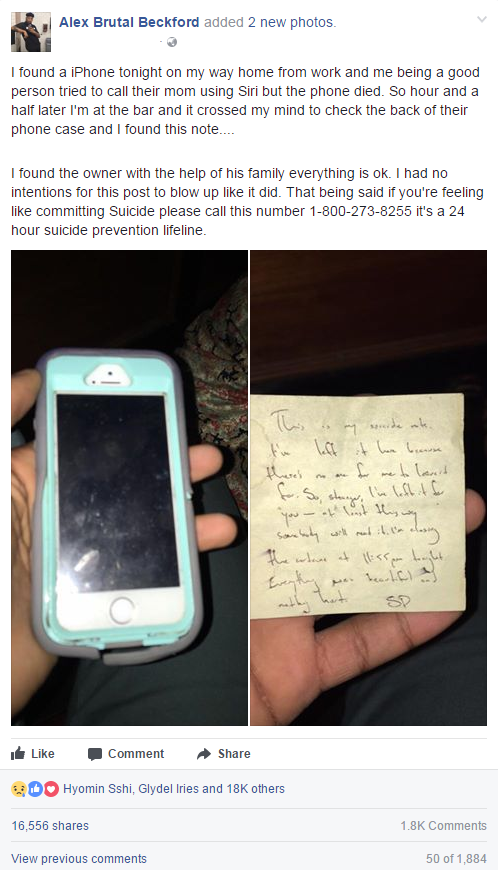 Alex Brutal Beckford added 2 new photos.
I found a iPhone tonight on my way home from work and me being a good
person tried to call their mom using Siri but the phone died. So hour and a
half later I'm at the bar and it crossed my mind to check the back of their
phone case and I found this note....
I found the owner with the help of his family everything is ok. I had no
intentions for this post to blow up like it did. That being said if you're feeling
like committing Suicide please call this number 1-800-273-8255 it's a 24
hour suicide prevention lifeline.
This is my suicide note.
I've left it here because
there's no one for me to leave it
for. So, stranger, I've left it for
you — at least this way
somebody will read it. I'm closing
the curtains at 11:55pm tonight
Everything was beautiful and
nothing hurt. SD
Like
Comment
Share
Hyomin Sshi, Glydel Iries and 18K others
16,556 shares
1.8K Comments
View previous comments
50 of 1,884